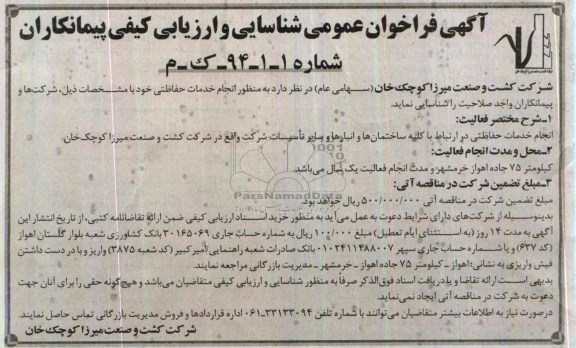 آگهی فراخوان عمومی شناسایی و ارزیابی کیفی پیمانکاران
شماره ۱-۱-۹۴-ک-م
شرکت کشت و صنعت میرزا کوچک‌خان (سهامی عام) در نظر دارد به منظور انجام خدمات حفاظتی خود با مشخصات ذیل، شرکت‌ها و
پیمانکاران واجد صلاحیت را شناسایی نماید.
۱-شرح مختصر فعالیت:
انجام خدمات حفاظتی در ارتباط با کلیه ساختمان‌ها و انبارها و سایر تأسیسات شرکت واقع در شرکت کشت و صنعت میرزا کوچک‌خان
۲-محل و مدت انجام فعالیت:
کیلومتر ۷۵ جاده اهواز خرمشهر و مدت انجام فعالیت یک سال می‌باشد.
۳-مبلغ تضمین شرکت در مناقصه آتی:
مبلغ تضمین شرکت در مناقصه آتی ۵۰۰/۰۰۰/۰۰۰ ریال خواهد بود.
بدینوسیله از شرکت‌های دارای شرایط دعوت به عمل می‌آید به منظور خرید اسناد ارزیابی کیفی ضمن ارائه تقاضانامه کتبی، از تاریخ انتشار این
آگهی به مدت ۱۴ روز (به استثنای ایام تعطیل) مبلغ ۱۰۰/۰۰۰ ریال به شماره حساب جاری ۳۰۱۶۵۰۶۹ بانک کشاورزی شعبه بلوار گلستان اهواز
(کد ۶۳۷) و یا شماره حساب جاری سپهر ۰۱۰۲۴۱۱۴۸۸۰۰۷ بانک صادرات شعبه راهنمایی امیرکبیر (کد شعبه ۳۸۷۵) واریز و با در دست داشتن
فیش واریزی به نشانی: اهواز - کیلومتر ۷۵ جاده اهواز - خرمشهر - مدیریت بازرگانی مراجعه نمایند.
بدیهی است ارائه تقاضا و یا دریافت اسناد فوق‌الذکر صرفاً به منظور شناسایی و ارزیابی کیفی متقاضیان می‌باشد و هیچ‌گونه حقی را برای آنان جهت
دعوت به شرکت در مناقصه آتی ایجاد نمی‌نماید.
در صورت نیاز به اطلاعات بیشتر متقاضیان می‌توانند با شماره تلفن ۳۳۱۳۳۰۹۴-۰۶۱ اداره قراردادها و فروش مدیریت بازرگانی تماس حاصل نمایند.
شرکت کشت و صنعت میرزا کوچک‌خان
ParsNamadData